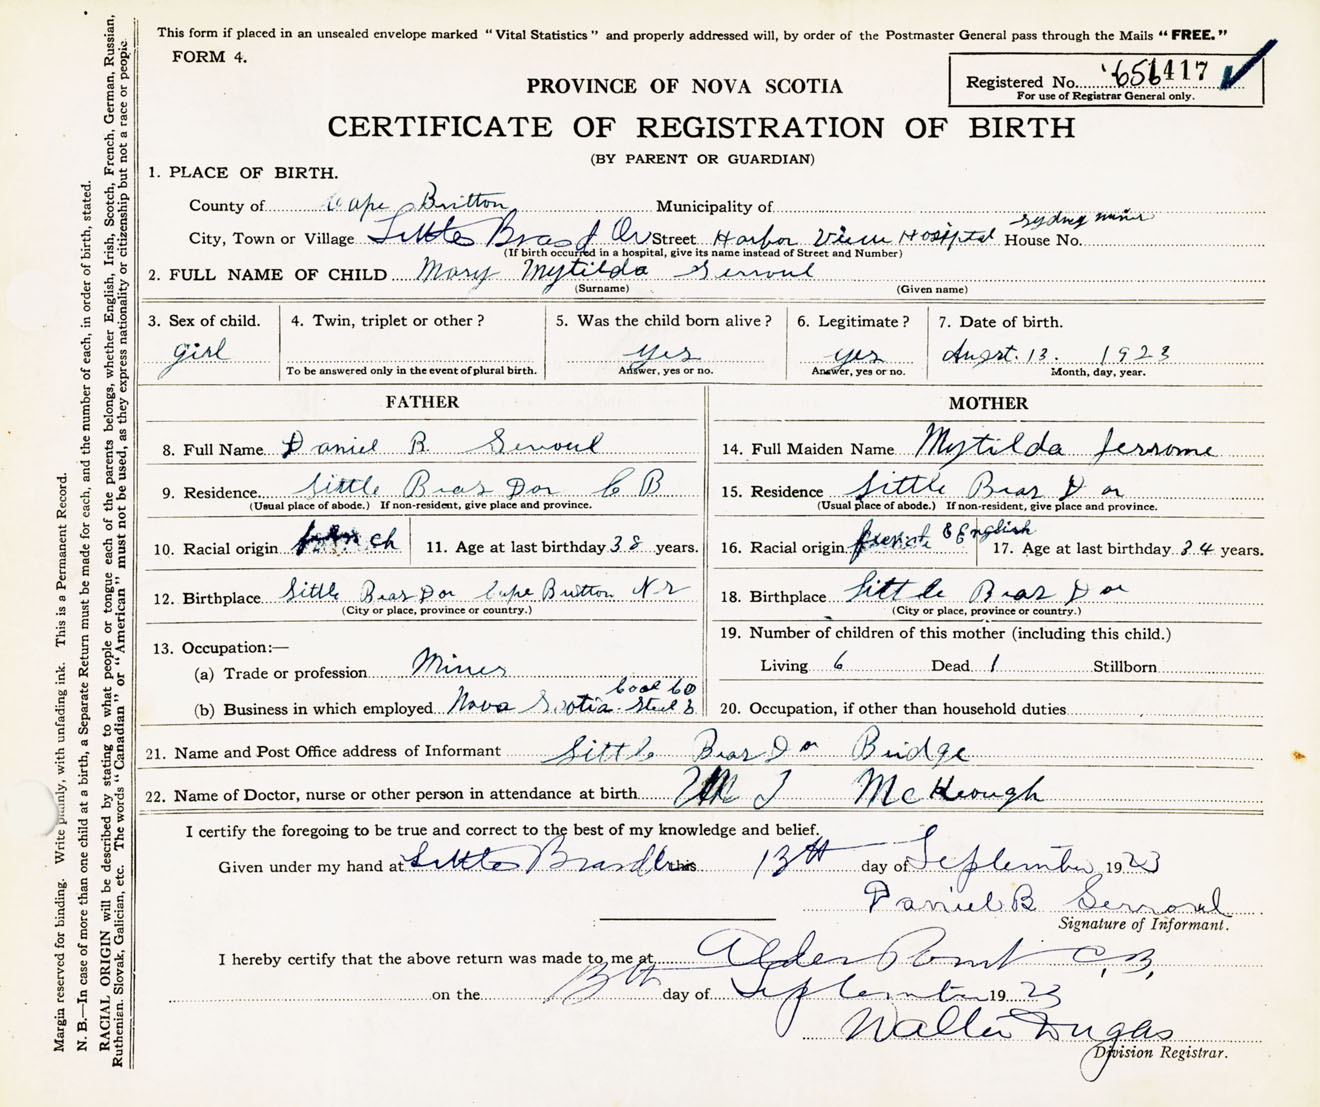 This form if placed in an unsealed envelope marked "Vital Statistics" and properly addressed will, by order of the Postmaster General pass through the Mails "FREE."
FORM 4.
Registered No. 1417
For use of Registrar General only.
PROVINCE OF NOVA SCOTIA
CERTIFICATE OF REGISTRATION OF BIRTH
(BY PARENT OR GUARDIAN)
1. PLACE OF BIRTH.
County of Cape Britton Municipality of
City, Town or Village Little Bras d Or Street Harbor View Hospital House No. Sydney mines
(If birth occurred in a hospital, give its name instead of Street and Number)
2. FULL NAME OF CHILD Mary Mytilda Serroul
(Surname) (Given name)
3. Sex of child. 4. Twin, triplet or other? 5. Was the child born alive? 6. Legitimate? 7. Date of birth.
girl yes yes Augst. 13. 1923
To be answered only in the event of plural birth. Answer, yes or no. Answer, yes or no. Month, day, year.
FATHER
8. Full Name Daniel B Serroul
9. Residence Little Bras Dor C B
(Usual place of abode.) If non-resident, give place and province.
10. Racial origin french 11. Age at last birthday 38 years.
12. Birthplace Little Bras Dor Cape Britton N S
(City or place, province or country.)
13. Occupation:—
(a) Trade or profession Miner
(b) Business in which employed Nova Scotia Steel & Coal Co
MOTHER
14. Full Maiden Name Mytilda Jerrome
15. Residence Little Bras D or
(Usual place of abode.) If non-resident, give place and province.
16. Racial origin french & English 17. Age at last birthday 34 years.
18. Birthplace Little Bras D or
(City or place, province or country.)
19. Number of children of this mother (including this child.)
Living 6 Dead 1 Stillborn
20. Occupation, if other than household duties
21. Name and Post Office address of Informant Little Bras D or Bridge
22. Name of Doctor, nurse or other person in attendance at birth J McKeough
I certify the foregoing to be true and correct to the best of my knowledge and belief.
Given under my hand at Little Bras d'Or this 13th day of September 1923
Daniel B Serroul
Signature of Informant.
I hereby certify that the above return was made to me at Alder Point C.B.
on the 13th day of September 1923
Walter Dugas
Division Registrar.
Margin reserved for binding. Write plainly, with unfading ink. This is a Permanent Record.
N. B.—In case of more than one child at a birth, a Separate Return must be made for each, and the number of each, in order of birth, stated.
RACIAL ORIGIN will be described by stating to what people or tongue each of the parents belongs, whether English, Irish, Scotch, French, German, Russian,
Ruthenian, Slovak, Galician, etc. The words "Canadian" or "American" must not be used, as they express nationality or citizenship but not a race or people